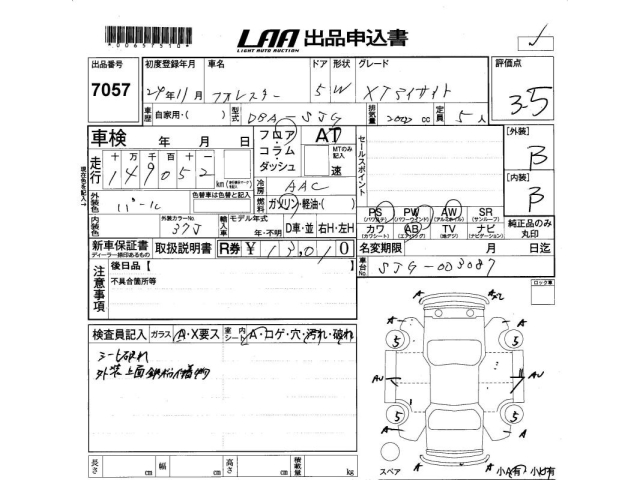 *0065751 0*
LAA 出品申込書
LIGHT AUTO AUCTION
出品番号 初度登録年月 車名 ドア 形状 グレード 評価点
7057 24年11月 フォレスター 5 W XTアイサイト 3.5
車歴 自家用・( ) 型式 DBA-SJG 排気量 2000 cc 定員 5人
車検 年 月 日 フロア コラム ダッシュ AT MTのみ記入 速 セールスポイント
[外装] B
走行 十万 千 百 十 一
149052 km
[内装] B
外装色 パール 色替車は色替と記入
冷房 AAC
燃料 ガソリン・軽油・( )
内装色 外装カラーNo. 37J 輸入車記入 モデル年式 年・不明 D車・並 右H・左H
PS (パワステ) PW (パワーウインド) AW (アルミホイル) SR (サンルーフ)
カワ (カワシート) AB (エアバッグ) TV (地デジ) ナビ (ナビゲーション)
純正品のみ丸印
新車保証書 ディーラー捺印あるもの 取扱説明書 R券 ¥13,010
名変期限 月 日迄
車台No. SJG-003087
注意事項 後日品【
不具合箇所等
ロック車
検査員記入 ガラス A・X要ス 室内 シート A・コゲ・穴・汚れ・破れ
シート破れ
外装上面
A A
5 5
AU AU
5 5
A A
A A
スペア 小A有 小U有
長さ cm 幅 cm 高さ cm 積載量 kg